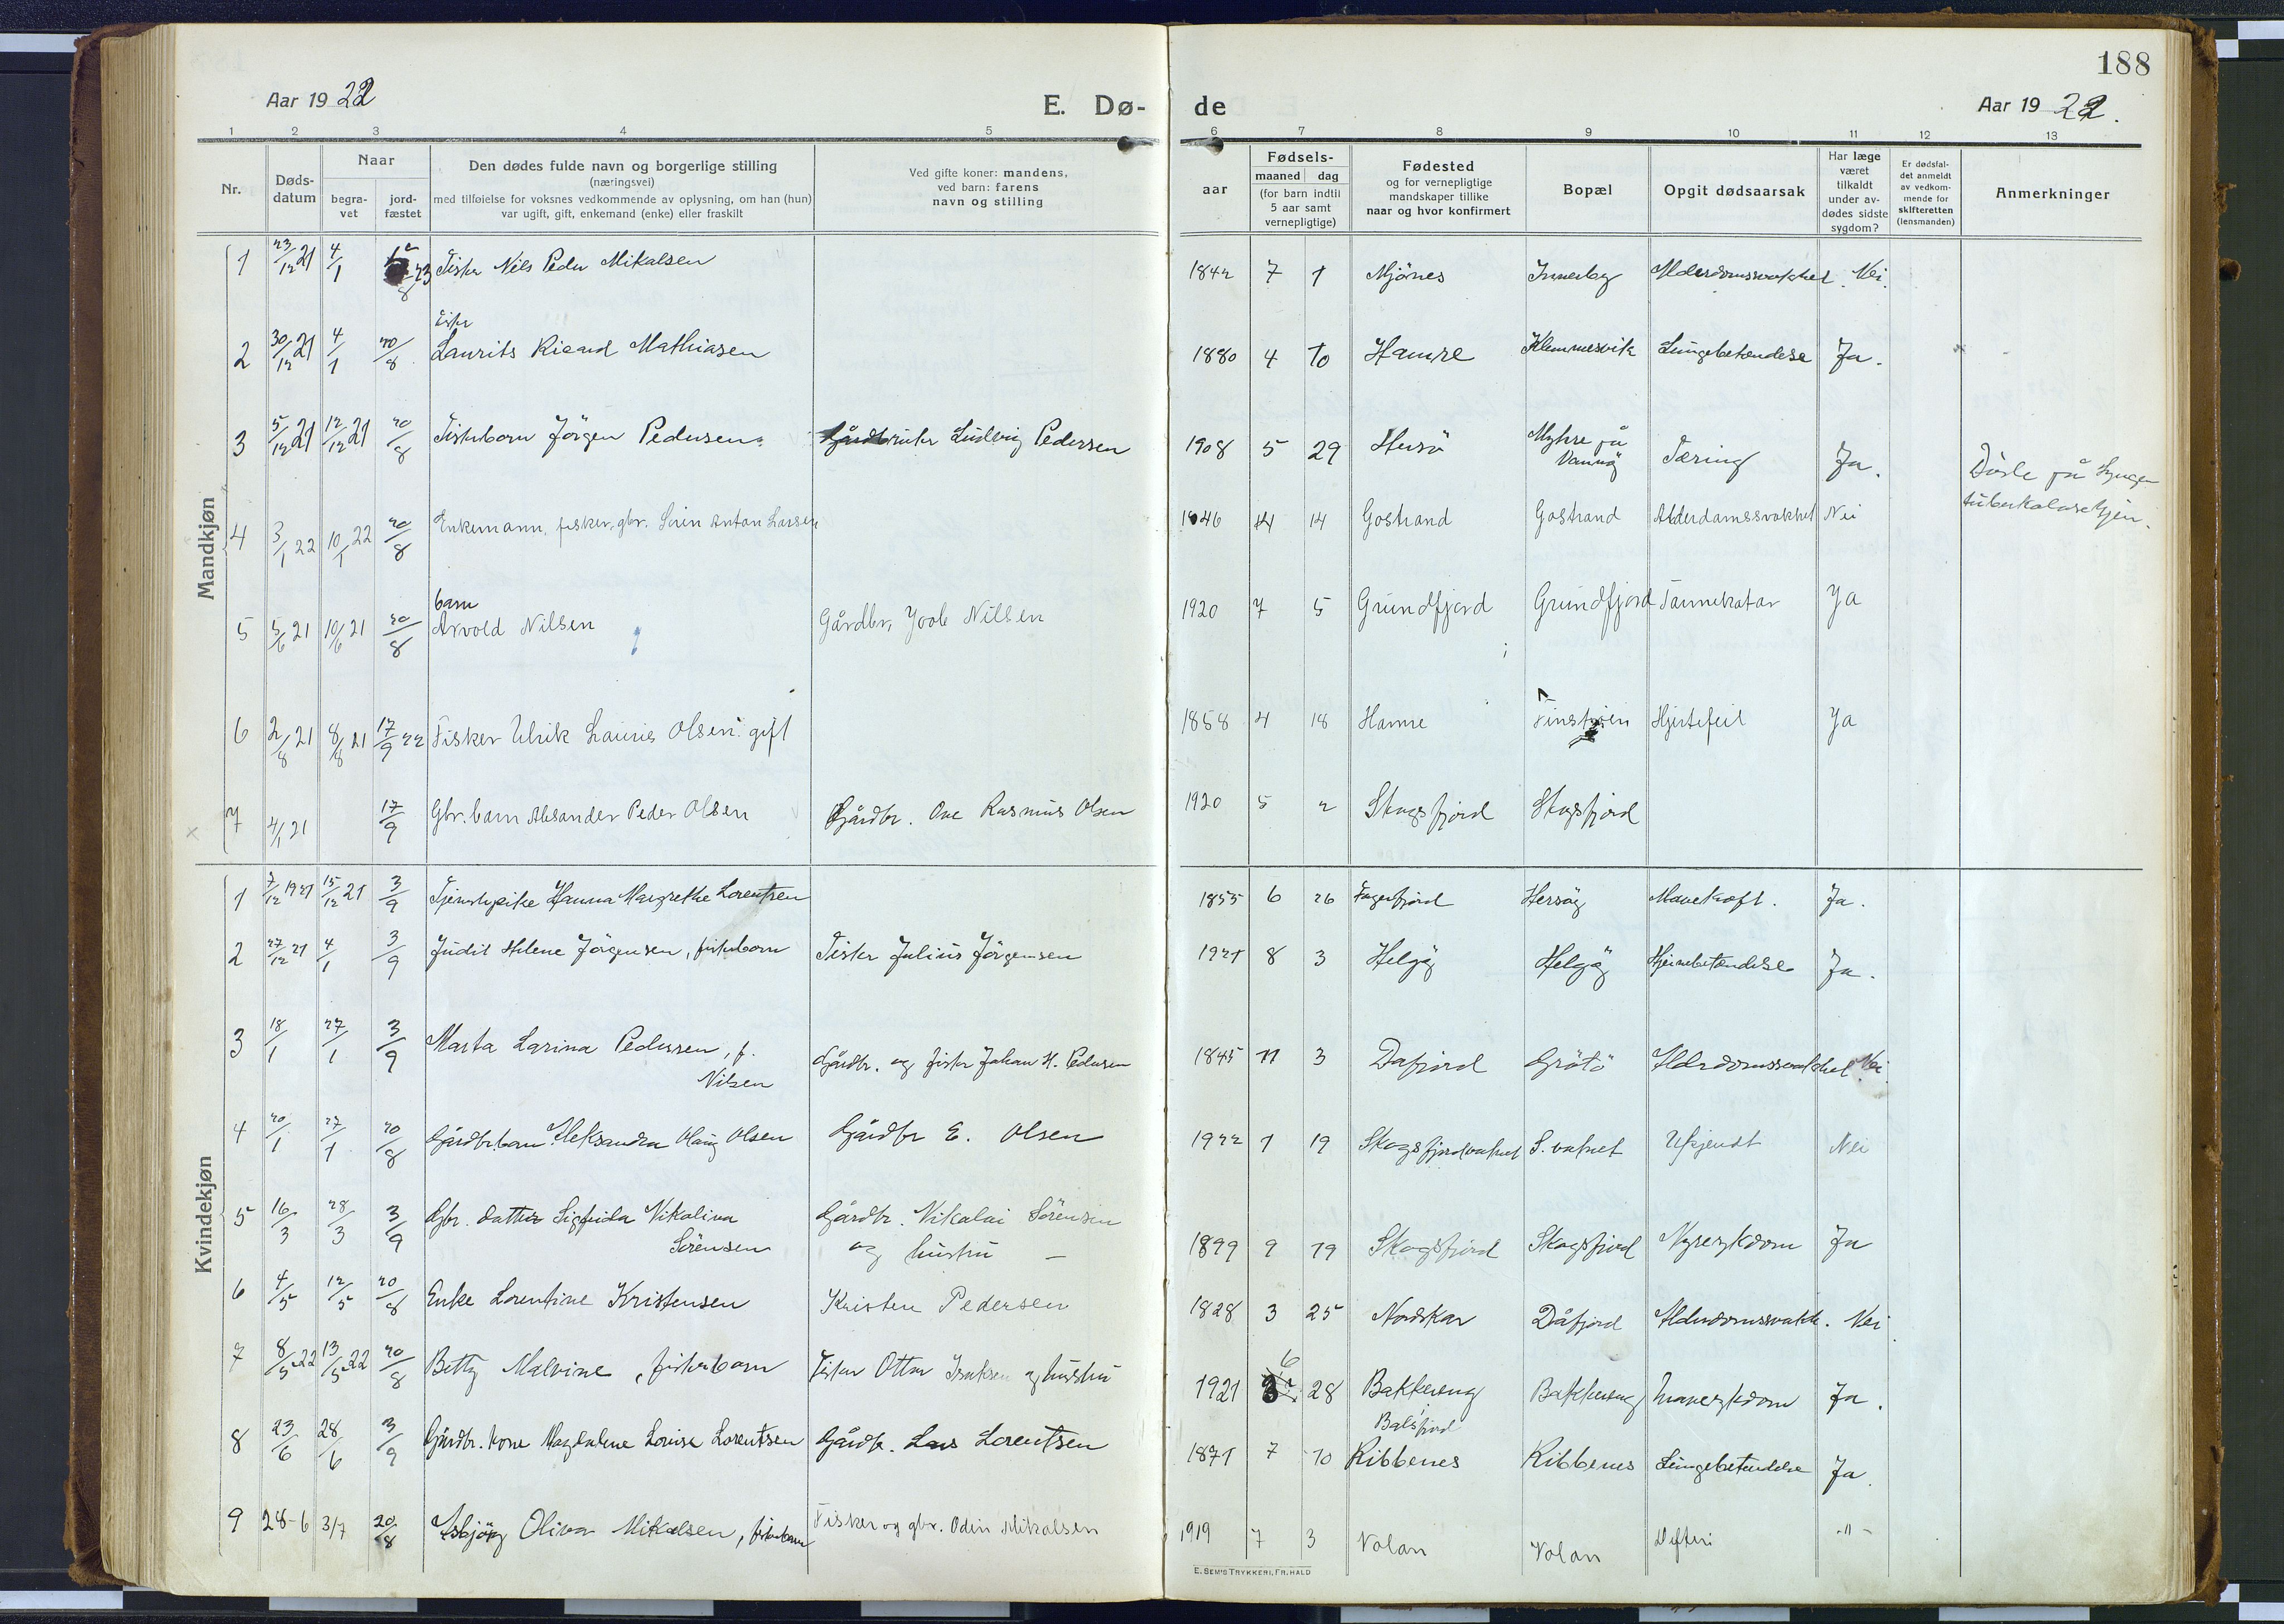 188
Aar 1922
E. Dø-
de
Aar 1922.
1 2 3 4 5 6 7 8 9 10 11 12 13
Nr.
Døds-
datum
Naar
begra-
vet
jord-
fæstet
Den dødes fulde navn og borgerlige stilling
(næringsvei)
med tilføielse for voksnes vedkommende av oplysning, om han (hun)
var ugift, gift, enkemand (enke) eller fraskilt
Ved gifte koner: mandens,
ved barn: farens
navn og stilling
aar
Fødsels-
maaned dag
(for barn indtil
5 aar samt
vernepligtige)
Fødested
og for vernepligtige
mandskaper tillike
naar og hvor konfirmert
Bopæl
Opgit dødsaarsak
Har læge
været
tilkaldt
under av-
dødes sidste
sygdom?
Er dødsfal-
det anmeldt
av vedkom-
mende for
skifteretten
(lensmanden)
Anmerkninger
Mandkjøn
1 23/12 21 4/1 Fisker Nils Peder Mikalsen 1842 7 1 Mjönes Innerby Alderdomssvakhet. Nei.
Fisker
2 30/12 21 4/1 20/8 Laurits Ricard Mathiasen 1880 4 10 Hamre Klemmesvik Lungebetændese Ja.
3 5/12 21 12/12 21 20/8 Fiskerbarn Jörgen Pedersen. Gårdbruker Ludvig Pedersen 1908 5 29 Hersö Myhre på
Vannöy Tæring Ja. Döde på Lyngen
tuberkulosehjem.
4 3/1 22 10/1 22 20/8 Enkemann, fisker, gbr. Sörin Anton Larsen 1846 4 14 Gostrand Gostrand Alderdamssvakhet Nei
barn
5 5/6 21 10/6 21 20/8 Arvold Nilsen Gårdbr, Joob Nilsen 1920 7 5 Grundfjord Grundfjord Tarmekatar Ja
6 2/8 21 8/8 21 17/9 22 Fisker Ulrik Laurits Olsen: gift 1858 4 18 Hamre Finskjoen Hjertefeil Ja
7 4/1 21 17/9 Gbr. barn Aleksander Peder Olsen Gårdbr. Ove Rasmus Olsen 1920 5 2 Skogsfjord Skogsfjord
Kvindekjøn
1 7/12 1921 15/12 21 3/9 Tjenestepike Hanna Margrethe Lorentsen 1855 6 26 Fagerfjord Hersöy Mavekræft. Ja.
2 27/12 21 4/1 3/9 Judit Helene Jörgensen, fiskerbarn Fisker Julius Jörgensen 1921 8 3 Helgöy Helgöy Hjernebetændelse Ja.
3 18/1 27/1 3/9 Marta Larina Pedersen, f.
Nilsen Gårdbr. og fisker Johan H. Pedersen 1845 11 3 Dafjord Grötö Alderdomssvakhet Nei.
4 20/1 27/1 20/8 Gårdbr.barn Aleksandra Olaug Olsen Gårdbr E. Olsen 1922 1 19 Skogsfjordvatnet S. vatnet Ukjendt Nei
5 16/3 28/3 3/9 Gbr. datter Sigfrida Nikoliva
Sörensen Gårdbr. Nikolai Sörensen
og hustru — 1899 9 19 Skogsfjord Skogsfjord Nyresykdom Ja
6 4/5 12/5 20/8 Enke Lorentine Kristensen Kristen Pedersen 1828 3 25 Nordskar Dåfjord Alderdomssvakh. Nei.
7 8/5 22 13/5 22 20/8 Betty Malvine, fiskerbarn Fisker Ottar Isaksen og hustru 1921 6 28 Bakkeeng Bakkeeng Mavesykdom Ja.
Balsfjord
8 23/6 28/6 3/9 Gårdbr. kone Magdalene Lovise Lorentsen Gårdbr. Lars Lorentsen 1871 7 10 Ribbenes Ribbenes Lungebetændelse Ja.
9 28-6 3/7 20/8 Asbjörg Oliva Mikalsen, fiskerbarn Fisker og gbr. Odin Mikalsen 1919 7 3 Volan Volan Difteri -"-
E. SEM'S TRYKKERI, FR.HALD